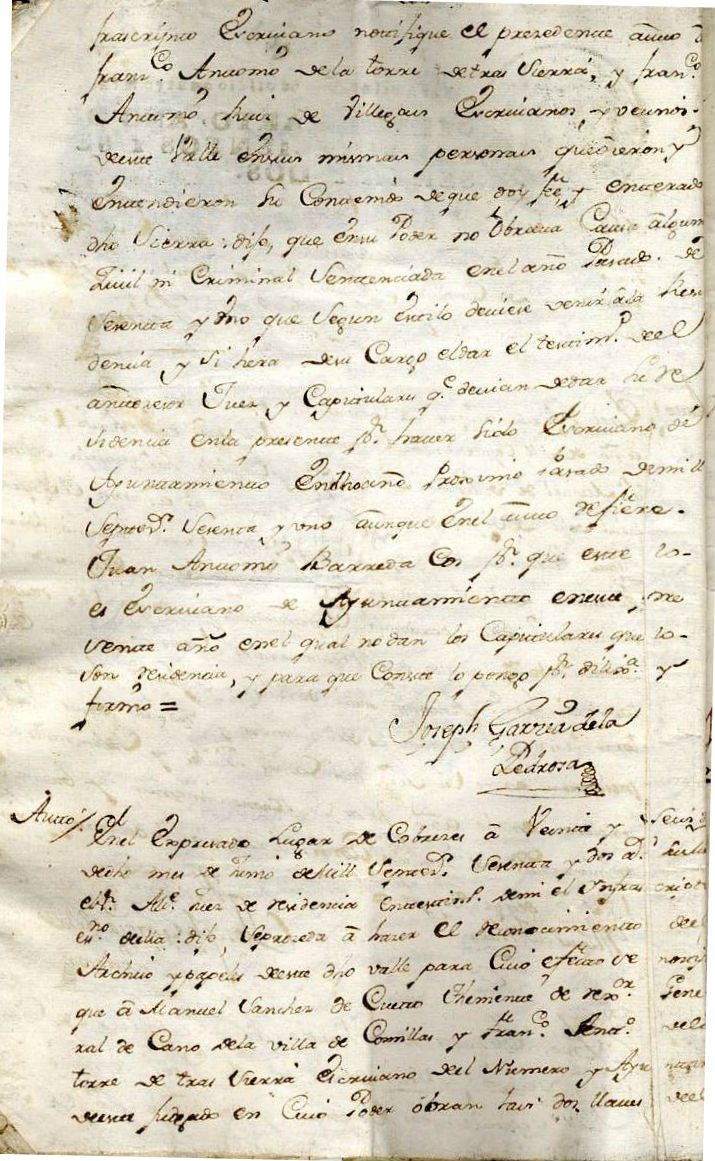 frascripto Escriuano notifique el prezedente auto
franco Antonio de la torre detras Sierra, y franco
Antonio Ruiz de Villegas Escriuanos, y veçinos
deeste Valle ensus mismas personas que oieron y
entendieron su Contenido de que doy fee, y enterado
dho Sierra: dijo, que ensu Poder no obraua Causa alguna
Zivil ni Criminal Sentenciada enel año Pasado. de
Sesenta y Vno que Segun estilo deuiese venir ala Resi
dencia y Si hera desu Cargo eldar el testimo. deel
antezesor Juez y Capitulares qe. deuian dedar su Re
sidencia enla presente pr. hauer sido Escriuano de
Ayuntamiento Endhoaño Proximo pasado demill
Setezs. Sesenta y vno aunque Enel auto Refiere.
Juan Antonio Barreda Cos pr. que este lo-
es Escriuano de Ayuntamiento eneste pre
sente año enel qual nodan los Capitulares que lo-
son residencia, y para que Conste lo pongo pr. dilixa. y
firmo =
Joseph Garzia dela
Pedrosa
Auto/. Enel Expresado Lugar de Cobreces â Veinte y Seis
dedho mes de Junio demill Setezs. Sesenta y dos as. su
Juez de residencia entestimo. demi el Ynfrascripto
esno. della: dijo, Seprozeda â hazer el Reconocimiento del
Archiuo y papeles deeste dho valle para Cuio efecto se notifi
que â Manuel Sanchez de Cueto Theniente de rexor. Gene
ral de Cano dela villa de Comillas y franco. Anto. dela
torre de tras Sierra Escriuano del Numero y Ayuntam
deeste Juzgado en Cuio Poder obran las dos llaues deel